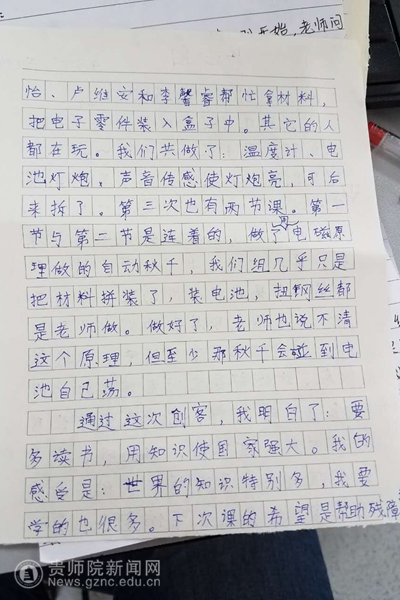 开始，老师问
怡、卢维安和李馨睿帮忙拿材料，
把电子零件装入盒子中。其它的人
都在玩。我们共做了：温度计、电
池灯炮，声音传感使灯炮亮，可后
来拆了。第三次也有两节课。第一
节与第二节是连着的，做了用电磁原
理做的自动秋千，我们组几乎只是
把材料拼装了，装电池，扭钢丝都
是老师做。做好了，老师也说不清
这个原理，但至少那秋千会碰到电
池自己荡。
通过这次创客，我明白了：要
多读书，用知识使国家强大。我的
感受是：世界的知识特别多，我要
学的也很多。下次课的希望是帮助残障
贵师院新闻网
News.gznc.edu.cn